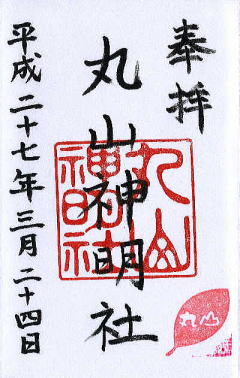 奉拝
丸山神明社
平成二十七年三月二十四日
丸山
神明社
丸山